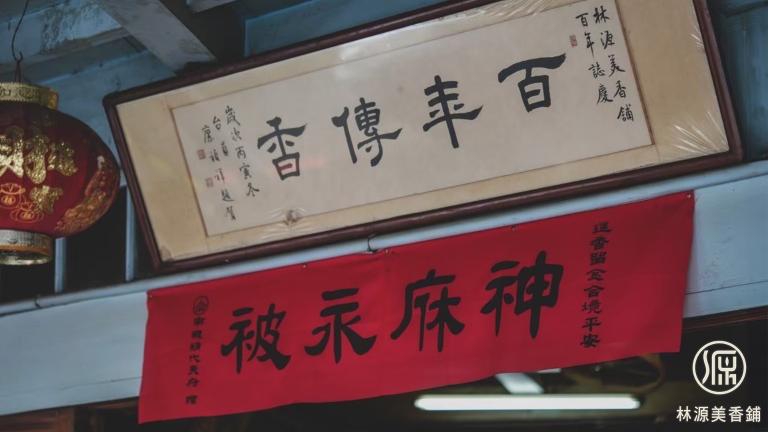 林源美香鋪
百年誌慶
百年傳香
歲次丙寅冬
遶香留念合境平安
神庥永被
林源美香鋪